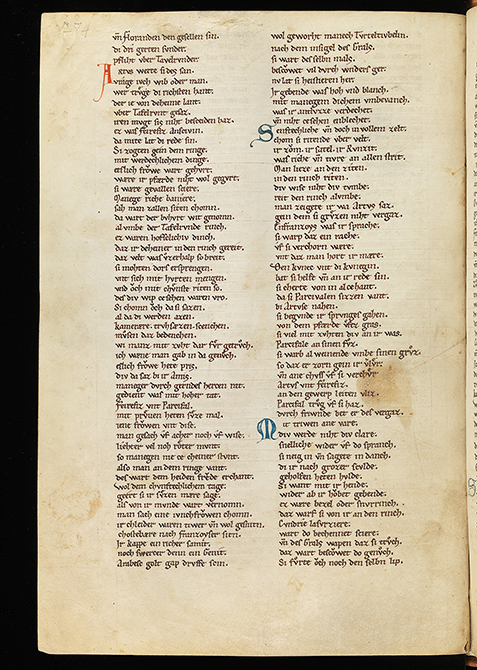 vn̄ floranden den gesellin sin.
di dri gerten sunder.
pfliht vber Tavelrunder.
Artus werte si des san.
swige iwch wib oder man.
wer truge di richsten hant.
der ie von deheime lant.
vber Tafelrunt gesaz.
iren mugt sis niht bescheiden baz.
ez was feirefiz anscivin.
da mite lat di rede sin.
Si zogten gein dem ringe.
mit werdechlichem dinge.
etslich frowe wart gehurt.
ware ir pfarde niht wol gegurt.
si ware gevallen sciere.
Manege riche baniere.
sah man zallen siten chomn.
da wart der buhurt wit genomn.
alvmbe der Tafelrunde rinch.
ez waren hoffslichiv dinch.
daz ir deheiner in den rinch gereit.
daz velt was vzerhalp so breit.
si mohten dors ersprengen.
vnt sich mit hurten mengen.
vnd och mit chvnste riten so.
des div wip ersehen waren vro.
Si chomn och da si sazen.
al da di werden azen.
kamerare trvhsæzen scenchen.
mvsen daz bedenchen.
wi manz mit zuht dar fur getruch.
ich wæne man gab in da genuch.
etslich frowe hete pris.
div da saz bi ir amis.
maneger durch gerndes herzen rat.
gedient was mit hoher tat.
feirefiz vnt Parcifal.
mit pruven heten suze wal.
iene frowen vnt dise.
man gesach vf acher noch vf wise.
liehter vel noh roter munt.
so manegen nie ze cheiner stunt.
also man an dem ringe vant.
des wart dem heiden freude erchant.
wol dem chvmftechlichem tage.
geert si ir suzen mare sage.
als von ir munde wart vernomn.
man sach eine ivnchfrowen chomn.
ir chleider waren tiwer vn̄ wol gesniten.
chostebære nach franzoyser siten.
Jr kappe ein richer samit.
noch swerzer denn ein genit.
Arabesc golt gap druffe sein.
wol geworht manech Turteltubelin.
nach dem insigel des Grals.
si wart des selbn mals.
bescowet vil durch wnders ger.
nv lat si heistieren her.
Jr gebende was hoh vnd blanch.
mit manegem dichem umbevanch.
was ir antluzze verdechet.
vn̄ niht ersehen enblechet.
Senfteclîche vn̄ doch in vollem zelt.
chom si ritende vber velt.
ir zom. ir satel. ir Runzit.
was riche vn̄ tivre an allen strit.
Man liezc an den ziten.
in den rinch riten.
div wise niht div tumbe.
reit den rinch alvmbe.
man zeigete ir wa Artus saz.
gein dem si gruzen niht vergaz.
Enfranzoys was ir sprache.
si warp daz ein rache.
vf si verchorn ware.
vnt daz man hort ir mare.
Den kunec vnt di kunegin.
bat si helfe vn̄ an ir rede sin.
si cherte von in alcehant.
da si Parcivalen sizzen vant.
bi Artvse nahen.
si begunde ir springes gahen.
von dem pfarde vffez gras.
si viel mit zuhten div an ir was.
Parcifale an sinen fuz.
si warb al weinende vmbe sinen gruz.
so daz er zorn gein ir vlur.
vn̄ ane chuss vf si verchur
Artus vnt feirefiz.
an den gewerp leiten vliz.
Parcifal trug vf si haz.
durch friwnde bet er des vergaz.
Mit triwen ane vare.
div werde niht div clare.
snelliche wider vf do spranch.
si neig in vn̄ sagete in danch.
di ir nach grozer scvlde.
geholfen heten hvlde.
Si want mit ir hende.
wider ab ir hôbet gebende.
ez ware bezel oder snvrrinch.
daz warf si von ir an den rinch.
Cvndrie lafurziere.
wart do bechennet sciere.
vn̄ des Grals wapen daz si truch.
daz wart bescôwet do genuch.
Si furte och noch den selbn lip.